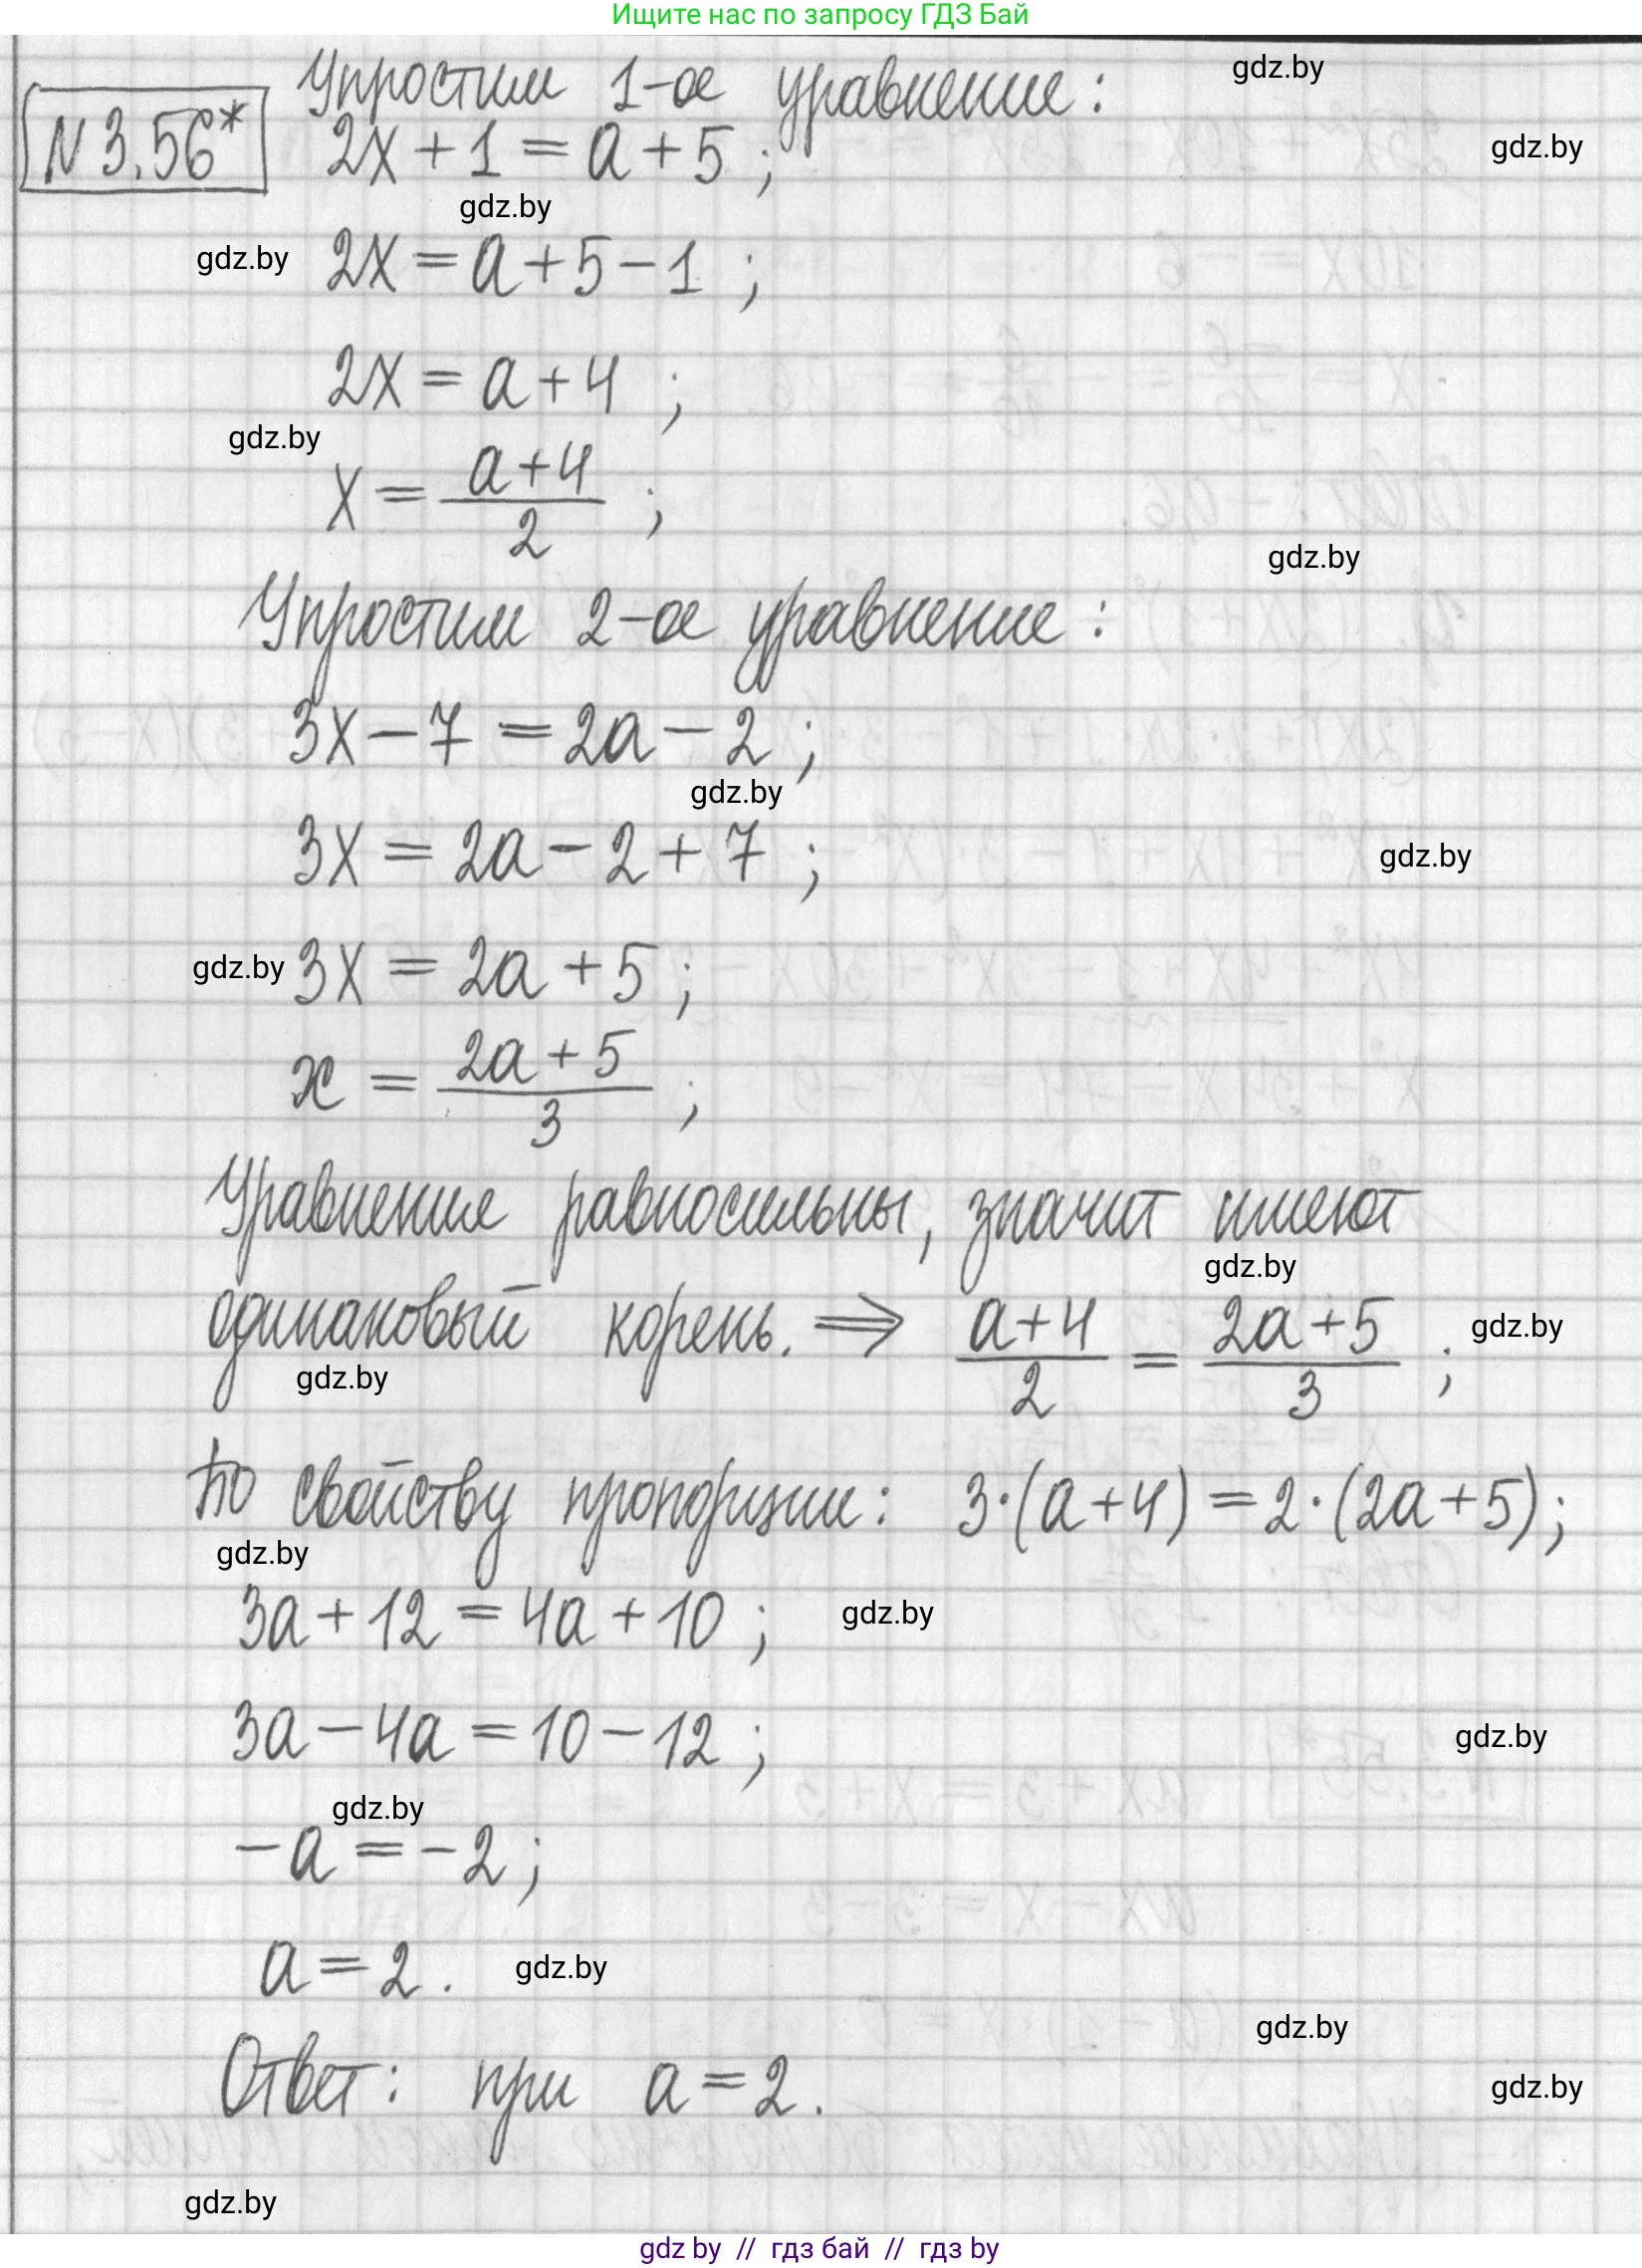 Ищите нас по запросу ГДЗ Бай
Упростим 1-ое уравнение: gdz.by
N 3.56* 2x + 1 = a + 5 ; gdz.by
gdz.by
gdz.by 2x = a + 5 - 1 ;
2x = a + 4 ;
gdz.by
x = \frac{a+4}{2} ;
gdz.by
Упростим 2-ое уравнение :
3x - 7 = 2a - 2 ;
gdz.by
3x = 2a - 2 + 7 ; gdz.by
gdz.by 3x = 2a + 5 ;
x = \frac{2a + 5}{3} ;
Уравнения равносильны, значит имеют
gdz.by
одинаковый корень. ⇒ \frac{a+4}{2} = \frac{2a+5}{3} ; gdz.by
gdz.by
По свойству пропорции: 3·(a+4) = 2·(2a+5);
gdz.by
3a + 12 = 4a + 10 ; gdz.by
3a - 4a = 10 - 12 ; gdz.by
gdz.by
-a = -2 ;
a = 2 . gdz.by
gdz.by
Ответ: при a = 2. gdz.by
gdz.by
gdz by // гдз бай // гдз by